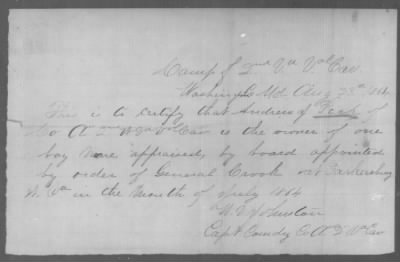 Camp of 2nd Va Vol Cav
Washing Co Md Aug 23rd 1864
This is to certify that Andrew J of
Co A 2 Va Vol Cav is the owner of one
bay Mare appraised, by board appointed
by order of General Crook at Parkersburg
W. Va in the Month of July 1864
W. D. Johnston
Capt Comdg Co A 2 Va Cav